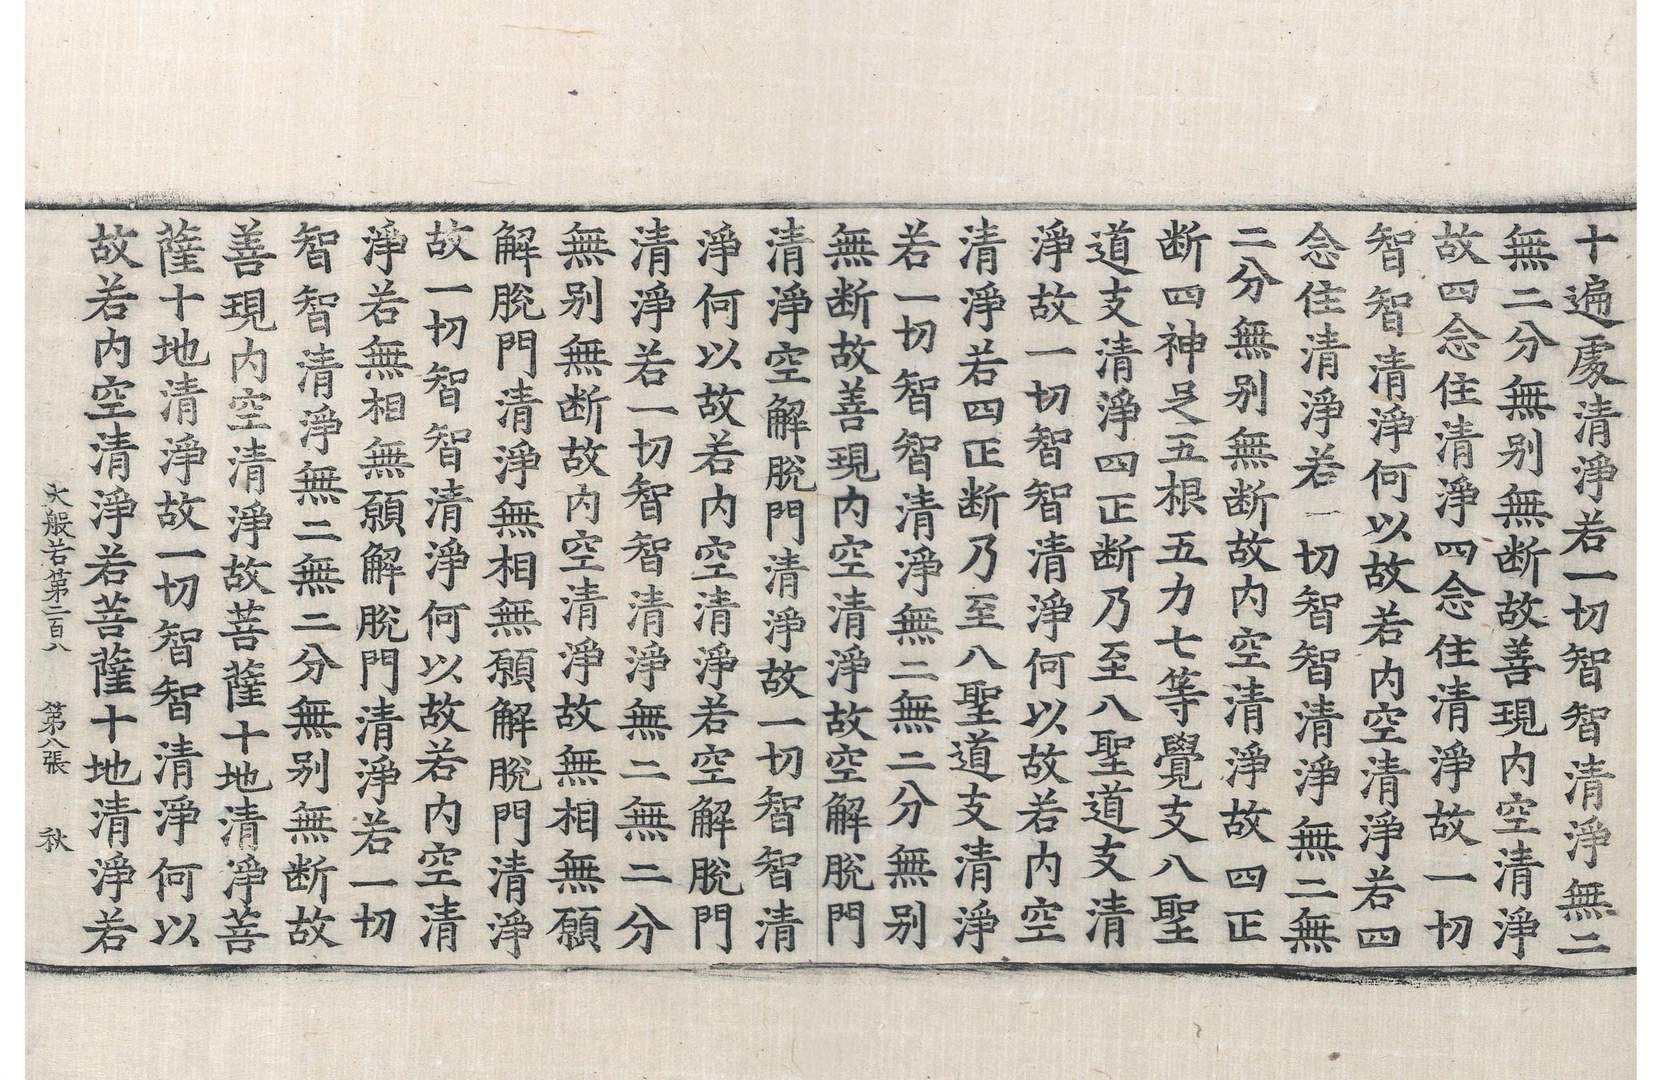 十遍處清淨若一切智智清淨無二
無二分無别無断故善現内空清淨
故四念住清淨四念住清淨故一切
智智清淨何以故若内空清淨若四
念住清淨若一切智智清淨無二無
二分無别無断故内空清淨故四正
断四神足五根五力七等覺支八聖
道支清淨四正断乃至八聖道支清
淨故一切智智清淨何以故若内空
清淨若四正断乃至八聖道支清淨
若一切智智清淨無二無二分無别
無断故善現内空清淨故空解脫門
清淨空解脫門清淨故一切智智清
淨何以故若内空清淨若空解脫門
清淨若一切智智清淨無二無二分
無别無断故内空清淨故無相無願
解脫門清淨無相無願解脫門清淨
故一切智智清淨何以故若内空清
淨若無相無願解脫門清淨若一切
智智清淨無二無二分無别無断故
善現内空清淨故菩薩十地清淨菩
薩十地清淨故一切智智清淨何以
故若内空清淨若菩薩十地清淨若
大般若第二百八 第八張 秋